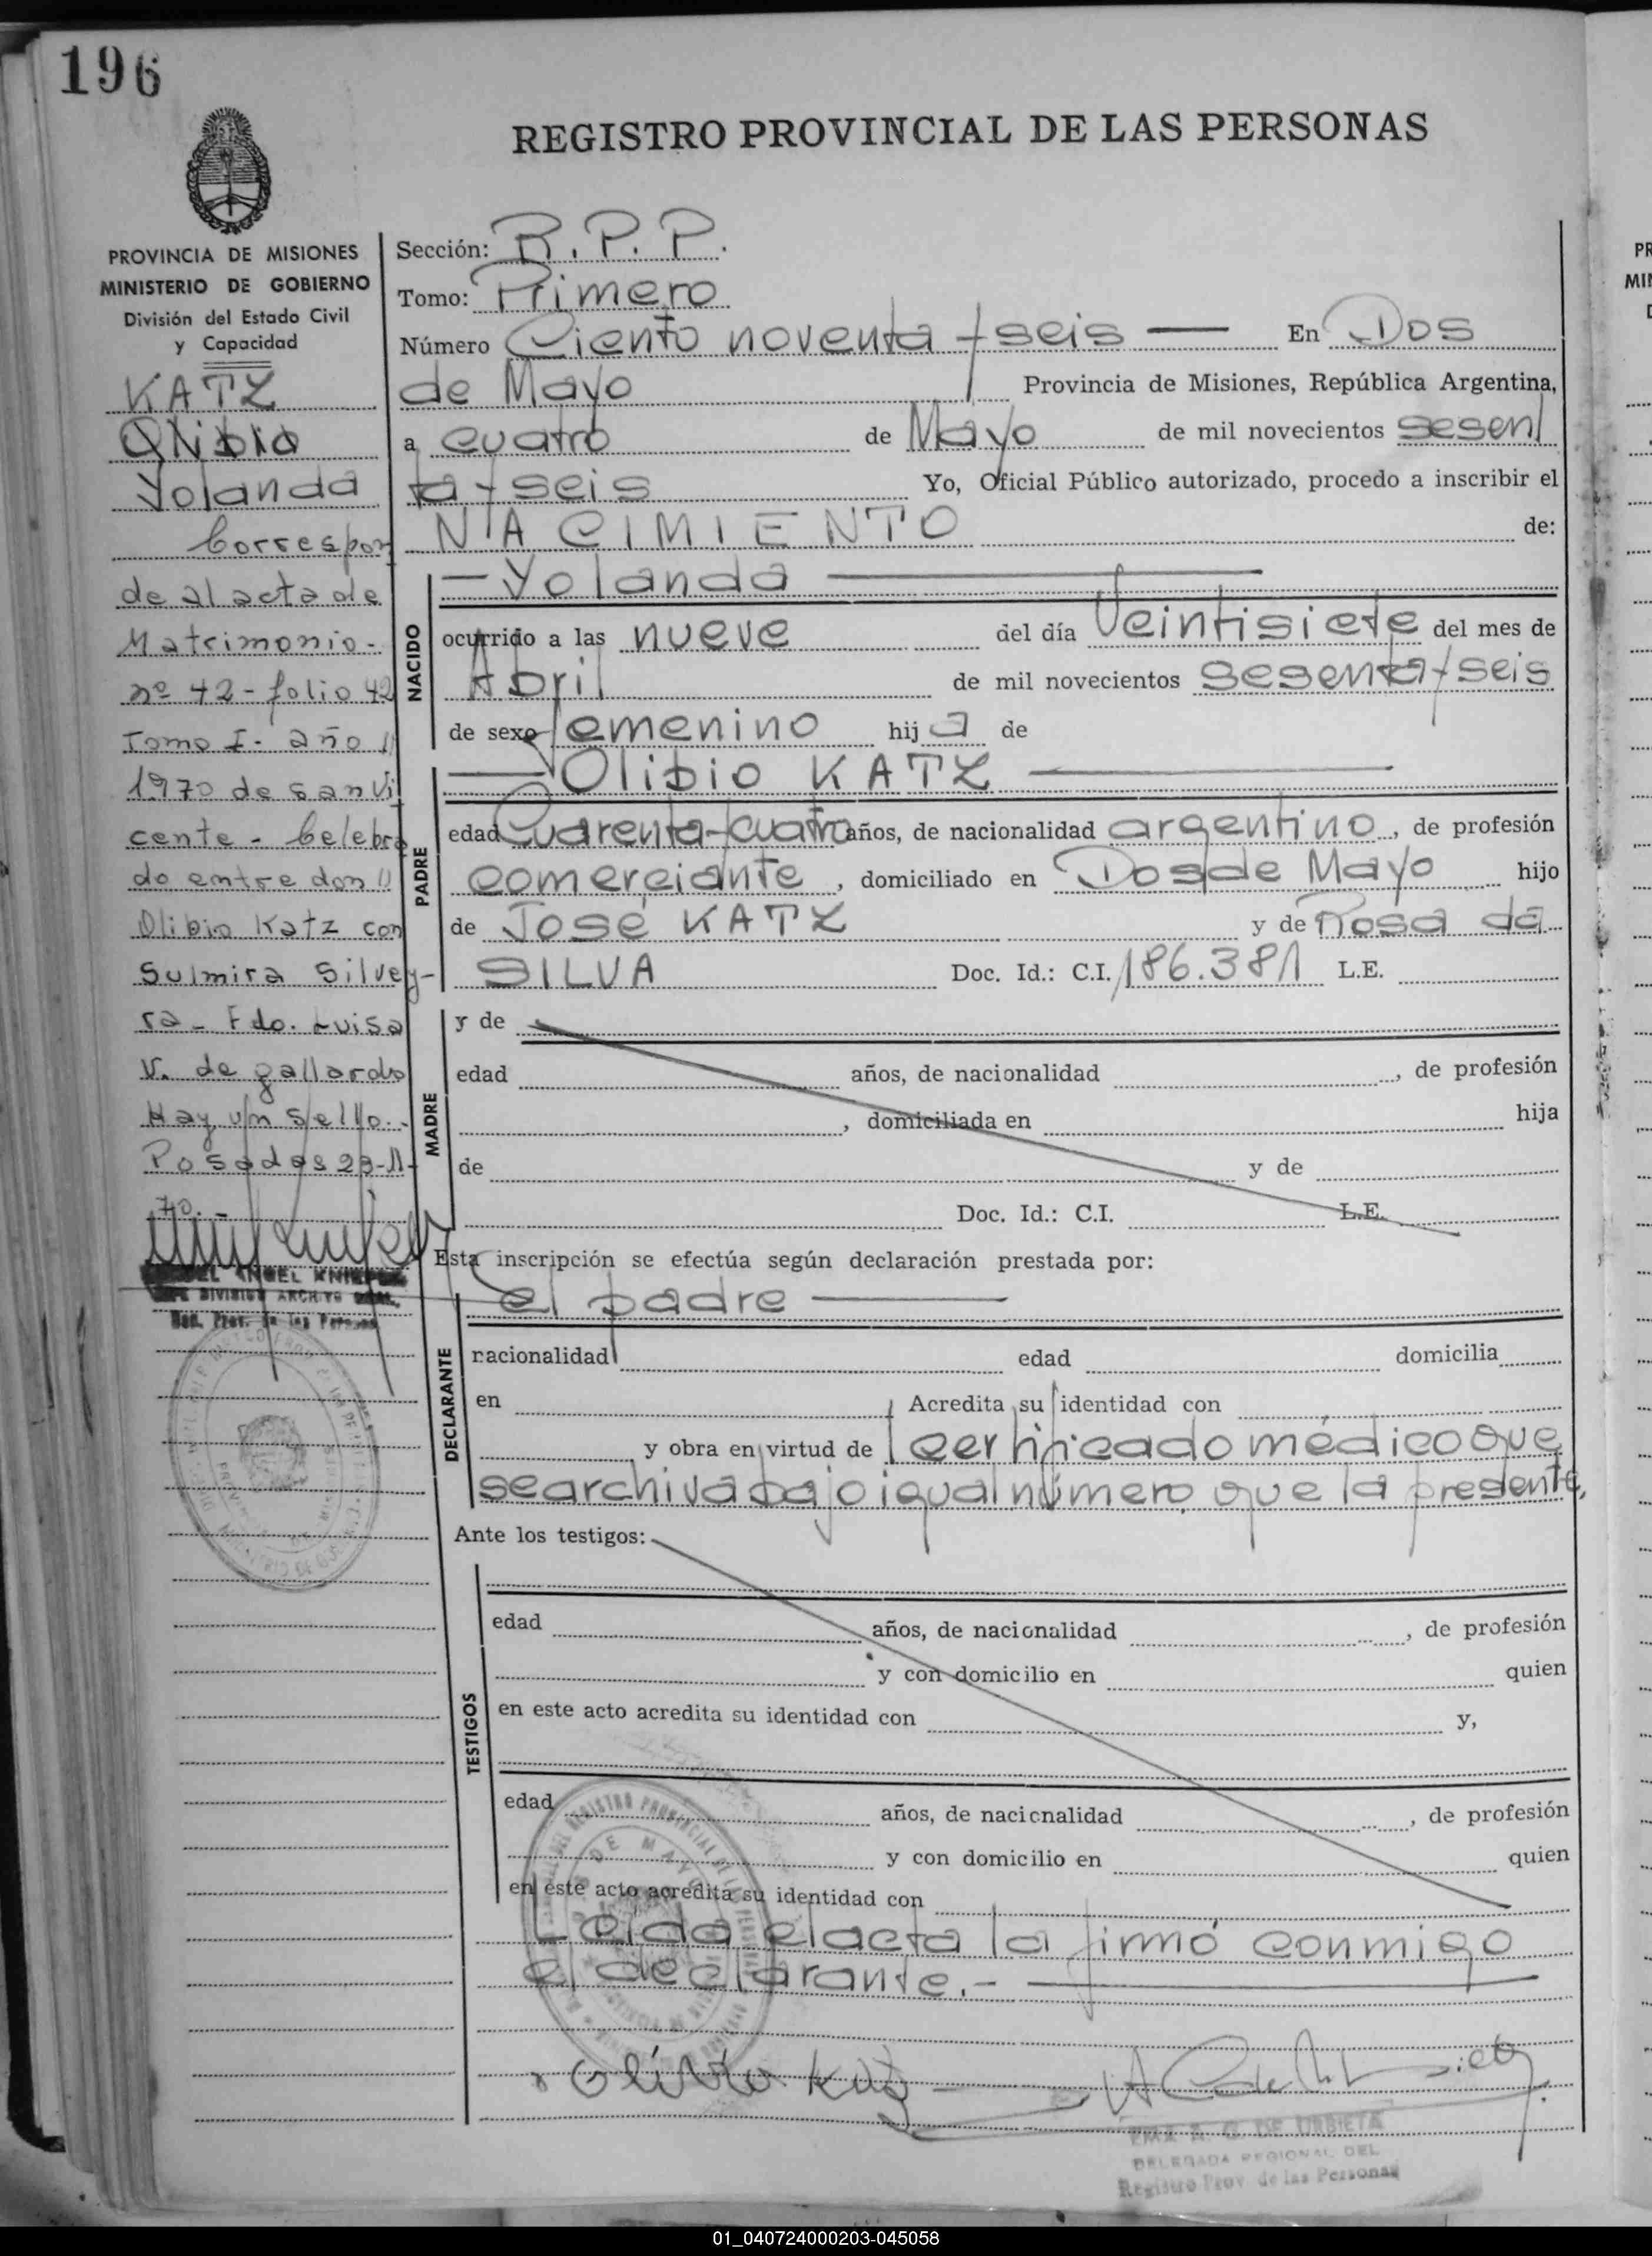 196
REGISTRO PROVINCIAL DE LAS PERSONAS
PROVINCIA DE MISIONES
MINISTERIO DE GOBIERNO
División del Estado Civil
y Capacidad
KATZ
Olibia
Yolanda
Correspon
de al acta de
Matrimonio-
nº 42-folio 42
Tomo I- año //
1970 de San Vi
cente - Celebra
do entre don //
Olibio Katz con
Sulmira Silvey-
ra- Fdo. Luisa
V. de gallardo
Hay un sello.-
Posadas 23-11-
70.-
ANGEL
DIVISION ARCHIVO GRAL.
Reg. Prov. de las Personas
Sección: R.P.P.
Tomo: Primero
Número Ciento noventa y seis — En Dos
de Mayo Provincia de Misiones, República Argentina,
a cuatro de Mayo de mil novecientos sesen/
ta y seis Yo, Oficial Público autorizado, procedo a inscribir el
NACIMIENTO de:
— Yolanda —
NACIDO
ocurrido a las nueve del día Veintisiete del mes de
Abril de mil novecientos sesenta y seis
de sexo femenino hija de
— Olibio KATZ —
PADRE
edad Cuarenta y cuatro años, de nacionalidad argentino, de profesión
comerciante, domiciliado en Dos de Mayo hijo
de José KATZ y de Rosa da
SILVA Doc. Id.: C.I. 186.381 L.E.
MADRE
y de
edad años, de nacionalidad , de profesión
, domiciliada en hija
de y de
Doc. Id.: C.I. L.E.
Esta inscripción se efectúa según declaración prestada por:
el padre —
DECLARANTE
nacionalidad edad domicilia
en Acredita su identidad con
y obra en virtud de certificado médico que
se archiva bajo igual número que la presente,
Ante los testigos:
TESTIGOS
edad años, de nacionalidad , de profesión
y con domicilio en quien
en este acto acredita su identidad con y,
edad años, de nacionalidad , de profesión
y con domicilio en quien
en este acto acredita su identidad con
Leida el acta la firmó conmigo
el declarante.- —
Olibio Katz
A. C. DE URBIETA
DELEGADA REGIONAL DEL
Registro Prov. de las Personas
01_040724000203-045058